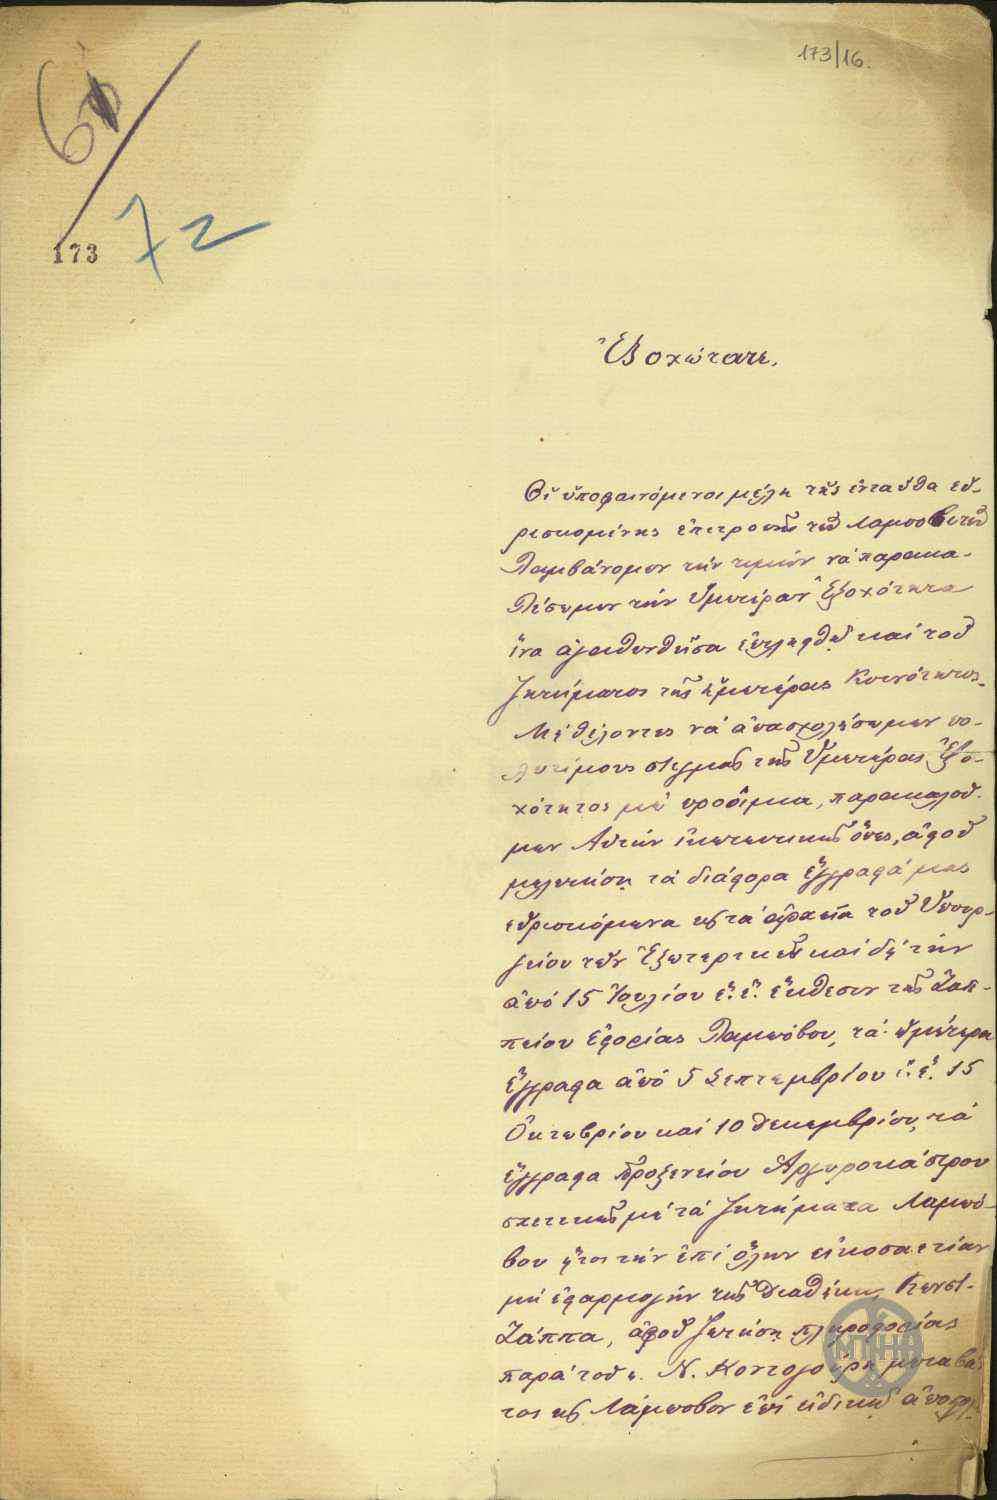 173/16.
67
173
72
Ἐξοχώτατε,
Οἱ ὑποφαινόμενοι μέλη τῆς ἐνταῦθα εὑ-
ρισκομένης ἐπιτροπῆς τῶν Λαμποβιτῶν
λαμβάνομεν τὴν τιμὴν νὰ παρακα-
λέσωμεν τὴν Ὑμετέραν Ἐξοχότητα
ἵνα εὐαρεστηθῇ καὶ τοῦ
ζητήματος τῆς ἡμετέρας Κοινότητος.
Μὴ θέλοντες νὰ ἀπασχολήσωμεν πο-
λυτίμους στιγμὰς τῆς Ὑμετέρας Ἐξο-
χότητος μὲ προοίμια, παρακαλοῦ-
μεν Αὐτὴν ἱκετευτικῶς ὅπως, ἀφοῦ
μελετήσῃ τὰ διάφορα ἔγγραφά μας
εὑρισκόμενα εἰς τὰ ἀρχεῖα τοῦ Ὑπουρ-
γείου τῶν Ἐξωτερικῶν καὶ δὴ τὴν
ἀπὸ 15 Ἰουλίου ἔ. ἔ. ἔκθεσιν τῆς Ζαπ-
πείου Ἐφορίας Λαμπόβου, τὰ ἡμέτερα
ἔγγραφα ἀπὸ 5 Σεπτεμβρίου ἔ. ἔ. 15
Ὀκτωβρίου καὶ 10 Δεκεμβρίου, τὰ
ἔγγραφα Προξενείου Ἀργυροκάστρου
σχετικῶς μὲ τὰ ζητήματα Λαμπό-
βου ἤτοι τὴν ἐπὶ ὅλην εἰκοσαετίαν
μὴ ἐφαρμογὴν τῆς Διαθήκης Κωνστ.
Ζάππα, ἀφοῦ ζητήσῃ πληροφορίας
παρὰ τοῦ κ. Ν. Κοντογούρη μεταβάν
τος εἰς Λάμποβον ἐπὶ εἰδικῇ ἀποστολ
ΜΠΗΗ